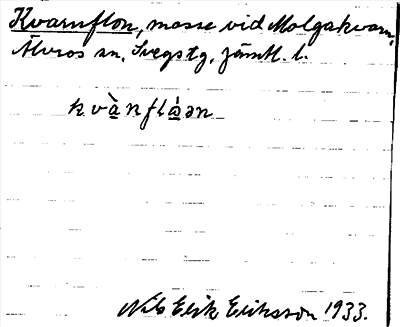 Kvarnflon, mosse vid Malgakvarn,
Älvros sn, Svegstg, Jämtl. l.
kvànfláən
Nils Erik Eriksson 1933.